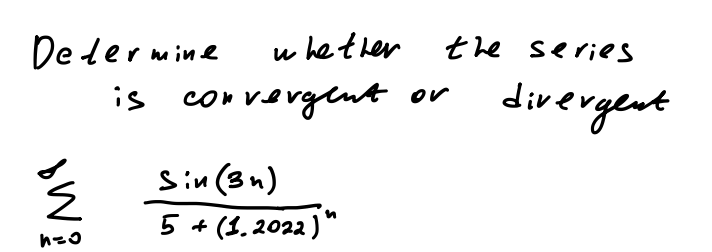 Determine whether the series
is convergent or divergent
∞
∑ sin(3n) / 5 + (1.2022)^n
n=0